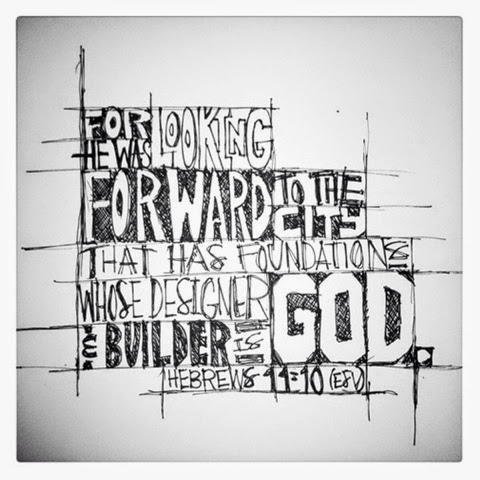 FOR
HE WAS LOOKING
FORWARD TO THE CITY
THAT HAS FOUNDATIONS
WHOSE DESIGNER
& BUILDER IS GOD.
HEBREWS 11:10 (ESV)